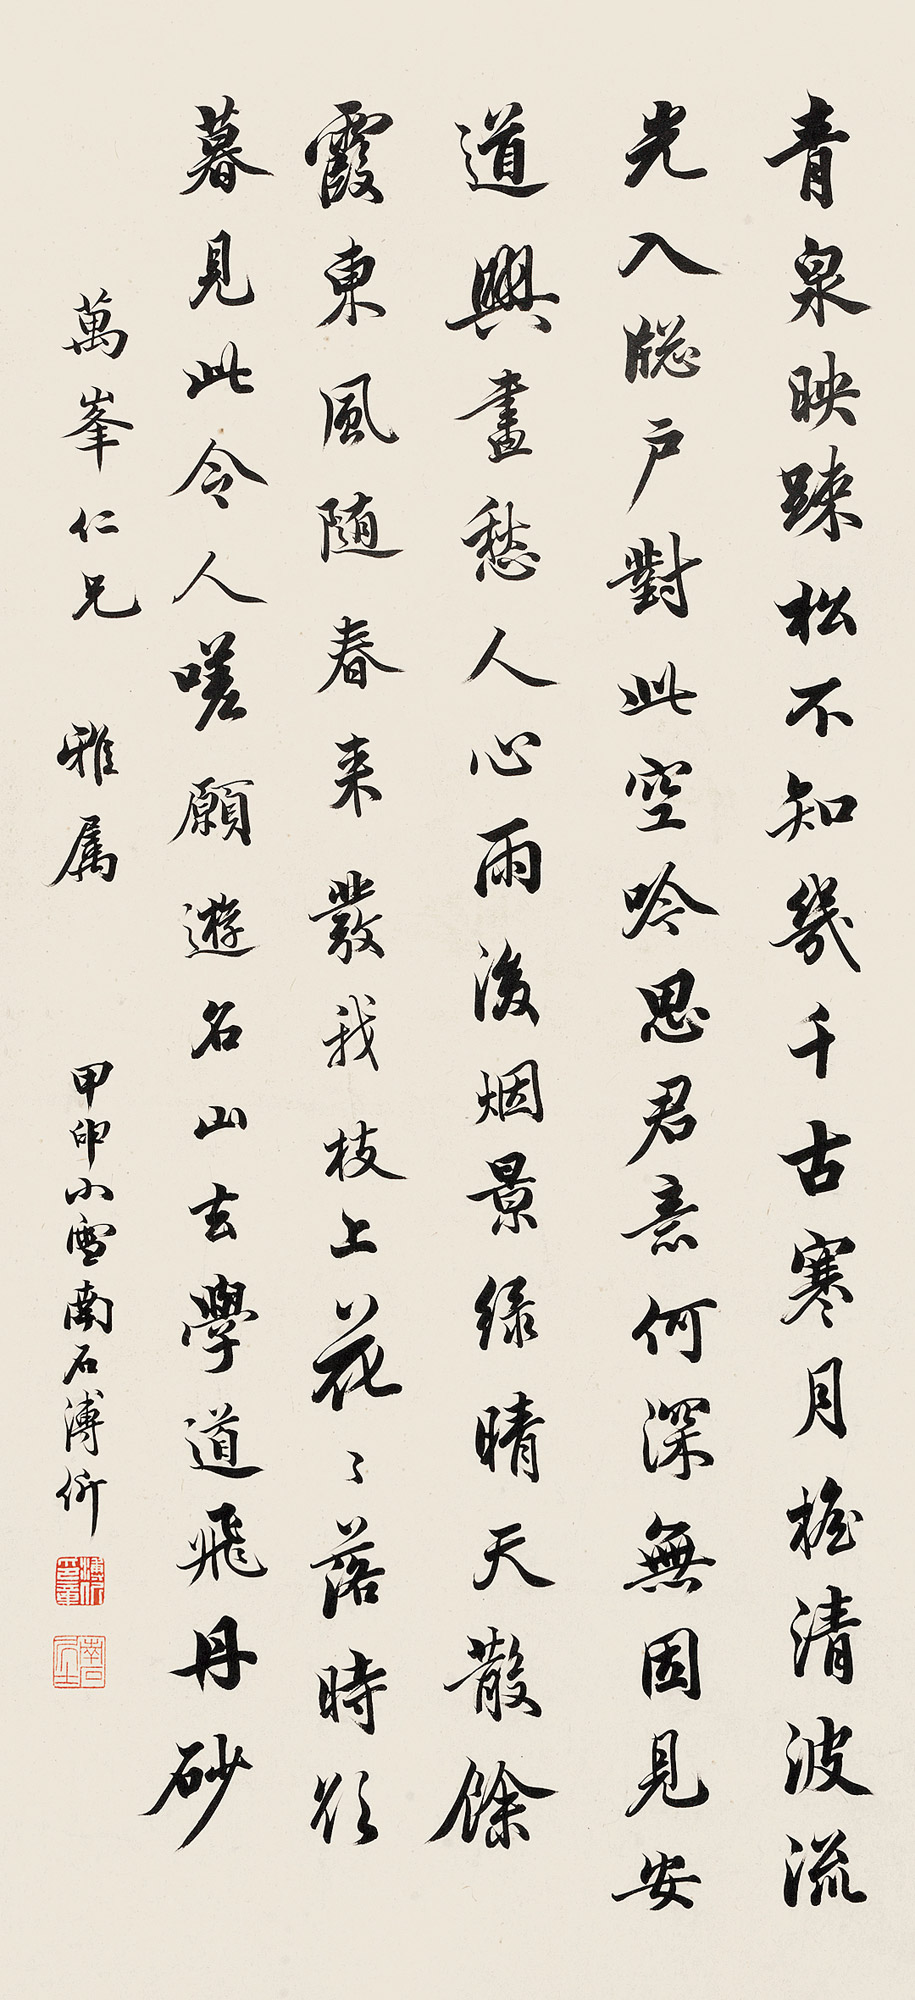 青泉映疎松不知幾千古寒月搖清波流
光入牕戶對此空吟思君意何深無因見安
道興盡愁人心雨後烟景綠晴天散餘
霞東風隨春來發我枝上花〻落時欲
暮見此令人嗟願遊名山去學道飛丹砂
萬峯仁兄 雅屬 甲申小雪南石溥伒